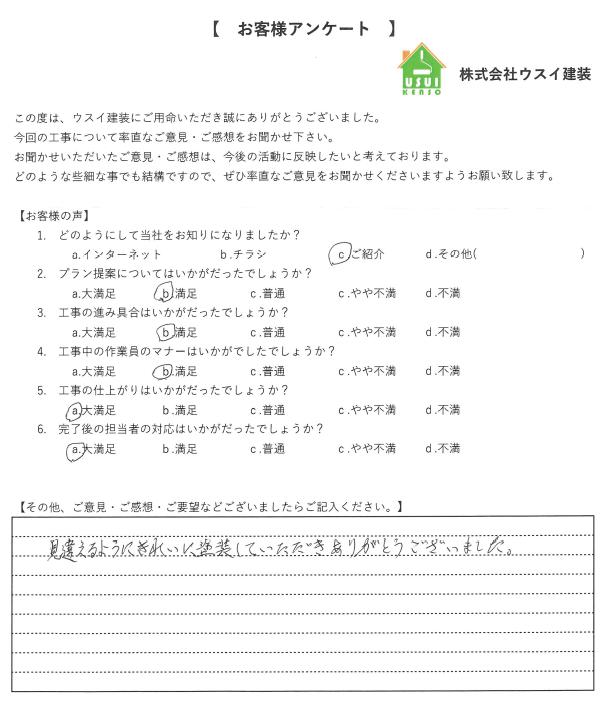 【 お客様アンケート 】
USUI
KENSO
株式会社ウスイ建装
この度は、ウスイ建装にご用命いただき誠にありがとうございました。
今回の工事について率直なご意見・ご感想をお聞かせ下さい。
お聞かせいただいたご意見・ご感想は、今後の活動に反映したいと考えております。
どのような些細な事でも結構ですので、ぜひ率直なご意見をお聞かせくださいますようお願い致します。
【お客様の声】
1. どのようにして当社をお知りになりましたか？
a.インターネット b.チラシ c.ご紹介 d.その他( )
2. プラン提案についてはいかがだったでしょうか？
a.大満足 b.満足 c.普通 c.やや不満 d.不満
3. 工事の進み具合はいかがだったでしょうか？
a.大満足 b.満足 c.普通 c.やや不満 d.不満
4. 工事中の作業員のマナーはいかがでしたでしょうか？
a.大満足 b.満足 c.普通 c.やや不満 d.不満
5. 工事の仕上がりはいかがだったでしょうか？
a.大満足 b.満足 c.普通 c.やや不満 d.不満
6. 完了後の担当者の対応はいかがだったでしょうか？
a.大満足 b.満足 c.普通 c.やや不満 d.不満
【その他、ご意見・ご感想・ご要望などございましたらご記入ください。】
見違えるようにきれいに塗装していただきありがとうございました。